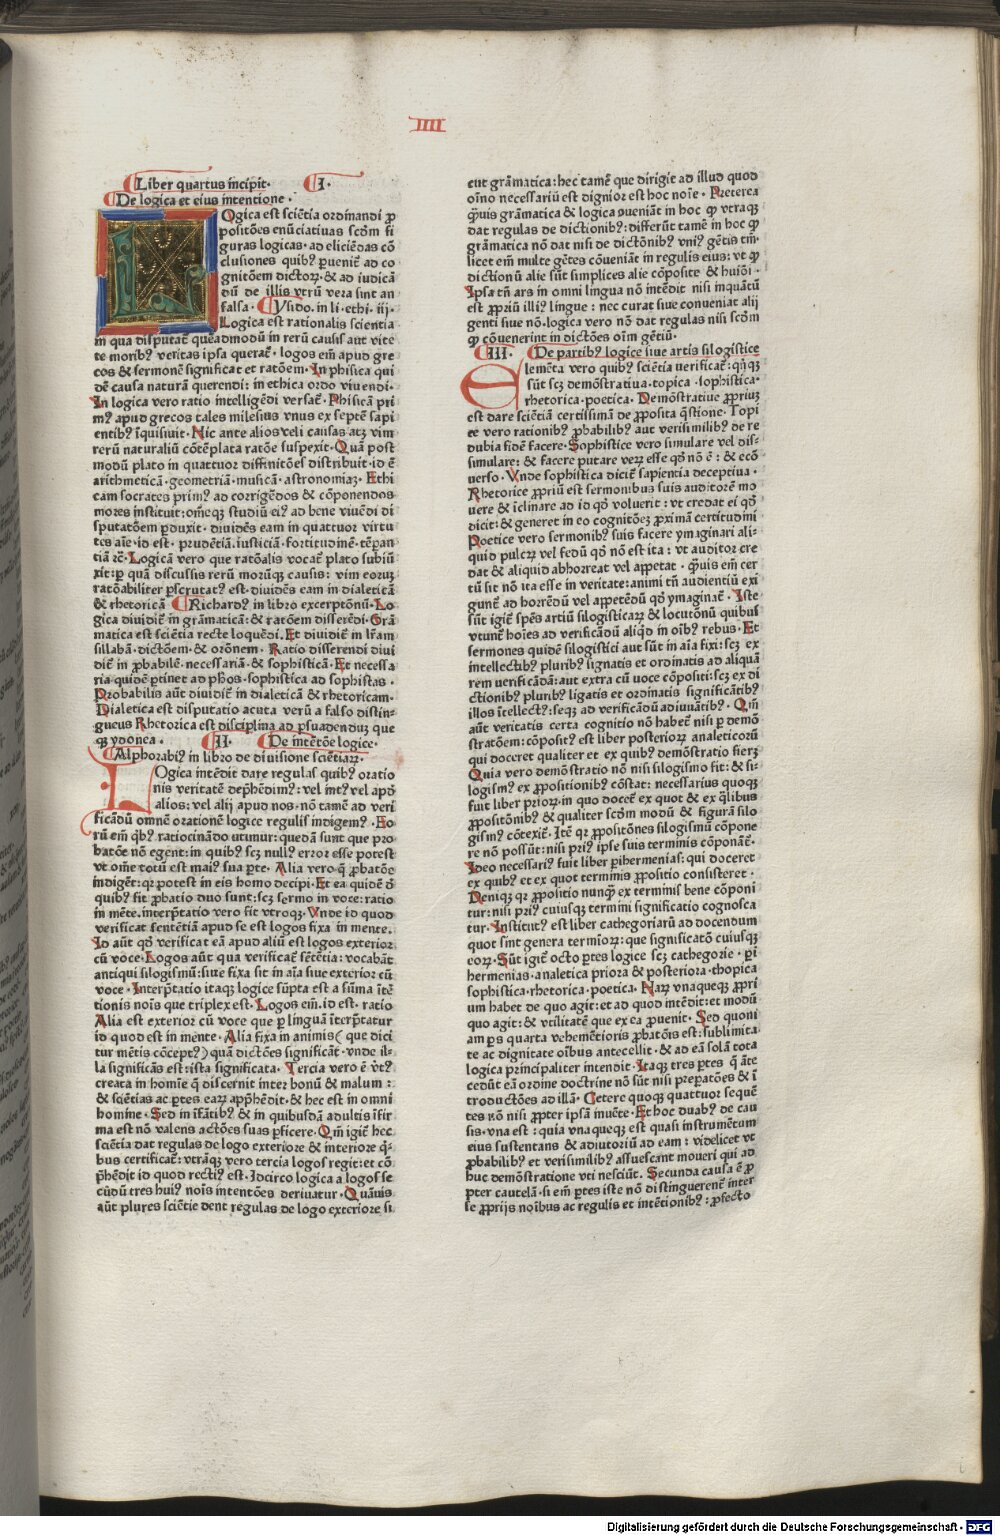 IIII
Liber quartus incipit· I·
De logica et eius intentione·
Ogica est sciẽtia ordinandi ꝓ
positões enũciatiuas scðm fi
guras logicas· ad eliciẽdas cõ
clusiones quibꝰ ꝑuenit᷑ ad co
gnitõem dictoꝝ· & ad iudicã
dũ de illis vtrũ vera sint an
falsa· Ysido. in li· ethi· iij·
Logica est rationalis scientia
in qua disputat᷑ queadmodũ in rerũ causis aut vite
te moribꝰ veritas ipsa querat᷑· logos em̃ apud gre
cos & sermonẽ significat et ratõem· In phisica qui
dẽ causa naturã querendi: in ethica ordo viuendi·
In logica vero ratio intelligẽdi versat᷑· Phisicã pri
mꝰ apud grecos tales milesius vnus ex septẽ sapi
entibꝰ ĩquisiuit· Nic ante alios celi causas atqꝫ vim
rerũ naturaliũ cõtẽplata ratõe suspexit· Quã post
modũ plato in quattuor diffinitões distribuit· id ẽ
arithmeticã· geometriã· musicã· astronomiaꝫ· Ethi
cam socrates primꝰ ad corrigẽdos & cõponendos
mores instituit: om̃eqꝫ studiũ eiꝰ ad bene viuẽdi di
sputatõem ꝑduxit· diuidẽs eam in quattuor virtu
tes aĩe· id est· prudẽtiã· iusticiã· fortitudinẽ· tẽꝑan
tiã ꝛc̃· Logicã vero que ratõalis vocat᷑ plato subiũ
xit: ꝑ quã discussis rerũ morũqꝫ causis: vim eoruꝫ
ratõabiliter ꝑscrutatꝰ est· diuidẽs eam in dialeticã
& rhetoricã Richardꝰ in libro excerptõnũ· Lo
gica diuidit᷑ in grãmaticã: & ratõem differẽdi· Grã
matica est sciẽtia recte loquẽdi· Et diuidit᷑ in lr̃am
sillabã· dictõem· & orõnem· Ratio disserendi diui
dit᷑ in ꝓbabilẽ· necessariã· & sophisticã· Et necessa
ria quidẽ ꝑtinet ad ph̃os· sophistica ad sophistas·
Probabilis aũt diuidit᷑ in dialeticã & rhetoricam·
Dialetica est disputatio acuta verũ a falso distin-
gueus Rhetorica est disciplina ad ꝑsuadenduꝫ que
qꝫ ydonea· II· De intẽtõe logice·
Alphorabiꝰ in libro de diuisione sciẽtiaꝝ·
LOgica intẽdit dare regulas quibꝰ oratio
nis veritatẽ dep̃hẽdimꝰ: vel int᷑ vel apð
alios: vel alij apud nos· nõ tamẽ ad veri
ficãdũ omnẽ orationẽ logice regulis indigemꝰ· Eo
rũ em̃ qͥbꝰ ratiocinãdo vtimur: quedã sunt que pro
batõe nõ egent: in quibꝰ scꝫ nullꝰ error esse potest
vt om̃e totũ est maiꝰ sua ꝑte· Alia vero q̃ ꝓbatõe
indigẽt: qꝛ potest in eis homo decipi· Et ea quidẽ õ
quibꝰ fit ꝓbatio duo sunt: scꝫ sermo in voce: ratio
in mẽte· interp̃tatio vero fit vtroqꝫ· Vnde id quod
verificat sentẽtiã apud se est logos fixa in mente·
Id aũt qð verificat eã apud aliũ est logos exterior
cũ voce· Logos aũt qua verificat᷑ sẽtẽtia: vocabãt
antiqui silogismũ: siue fixa sit in aĩa siue exterior cũ
voce· Interp̃tatio itaqꝫ logice sũpta est a sũma ĩtẽ
tionis noĩs que triplex est· Logos em̃· id est· ratio
Alia est exterior cũ voce que ꝑ linguã ĩterp̃tatur
id quod est in mente· Alia fixa in animis (que dici
tur mẽtis cõceptꝰ) quã dictões significãt· vnde il-
la significãs est: ista significata· Tercia vero ẽ vt᷑ꝰ
creata in homĩe q̃ discernit inter bonũ & malum:
& sciẽtias ac ꝑtes eaꝝ app̃hẽdit· & hec est in omni
homine· Sed in ĩfãtibꝰ & in quibusdã adultis ĩfir
ma est nõ valens actões suas ꝑficere· Qm̃ igit᷑ hec
sciẽtia dat regulas de logo exteriore & interiore q̃-
bus certificat᷑: vtrãqꝫ vero tercia logos regit: et cõ
p̃hẽdit id quod rectiꝰ est· Idcirco logica a logos se
cũdũ tres huiꝰ noĩs intentões deriuatur· Quãuis
aũt plures sciẽtie dent regulas de logo exteriore si
cut grãmatica: hec tamẽ que dirigit ad illud quod
oĩno necessariũ est dignior est hoc noĩe· Preterea
q̃uis grãmatica & logica ꝓueniãt in hoc ꝙ vtraqꝫ
dat regulas de dictionibꝰ: differũt tamẽ in hoc ꝙ
grãmatica nõ dat nisi de dictõnibꝰ vniꝰ gẽtis tm̃·
licet em̃ multe gẽtes cõueniãt in regulis eius: vt ꝙ
dictionũ alie sũt simplices alie cõposite & huiõi·
Ipsa tñ ars in omni lingua nõ intẽdit nisi inquãtũ
est ꝓpriũ illiꝰ lingue: nec curat siue conueniat alij
genti siue nõ· logica vero nõ dat regulas nisi scðm
ꝙ cõuenerint in dictões oĩm gẽtiũ·
III· De partibꝰ logice siue artis silogistice
ELemẽta vero quibꝰ sciẽtia verificat᷑: qͥnqꝫ
sũt scꝫ demõstratiua· topica· sophistica·
rhetorica· poetica· Demõstratiue ꝓpriuꝫ
est dare sciẽtiã certissimã de ꝓposita q̃stione· Topi
ce vero rationibꝰ ꝓbabilibꝰ aut verisimilibꝰ de re
dubia fidẽ facere· Sophistice vero simulare vel dis-
simulare: & facere putare veꝝ esse qð nõ ẽ: & ecõ
uerso· Vnde sophistica dicit᷑ sapientia deceptiua·
Rhetorice ꝓpriũ est sermonibus suis auditorẽ mo
uere & ĩclinare ad id qð voluerit: vt credat ei qð
dicit: & generet in eo cognitõeꝫ ꝓximã certitudini
Poetice vero sermonibꝰ suis facere ymaginari ali-
quid pulcꝝ vel fedũ qð nõ est ita: vt auditor cre
dat & aliquid abhorreat vel appetat· q̃uis em̃ cer
tũ sit nõ ita esse in veritate: animi tñ audientiũ exi
gunt᷑ ad horrẽdũ vel appetẽdũ qð ymaginãt᷑· Iste
sũt igit᷑ spẽs artiũ silogisticaꝝ & locutõnũ quibus
vtunt᷑ hoĩes ad verificãdũ aliqͥd in oĩbꝰ rebus· Et
sermones quidẽ silogistici aut sũt in aĩa fixi: scꝫ ex
intellectibꝰ pluribꝰ signatis et ordinatis ad aliquã
rem verificãdã: aut extra cũ voce cõpositi: scꝫ ex di
ctionibꝰ pluribꝰ ligatis et ordinatis significãtibꝰ
illos ĩtellectꝰ: seqꝫ ad verificãdũ adiuuãtibꝰ· Qm̃
aũt veritatis certa cognitio nõ habet᷑ nisi ꝑ demõ
stratõem: cõpositꝰ est liber posterioꝝ analeticorũ
qui doceret qualiter et ex quibꝰ demõstratio fieret
Quia vero demõstratio nõ nisi silogismo fit: & si-
logismꝰ ex ꝓpositionibꝰ cõstat: necessarius quoqꝫ
fuit liber prioꝝ· in quo docet᷑ ex quot & ex q̃libus
ꝓpositõnibꝰ & qualiter scðm modũ & figurã silo
gismꝰ cõtexit᷑· Itẽ qꝛ ꝓpositõnes silogismũ cõpone
re nõ possũt: nisi priꝰ ipse suis terminis cõponãt᷑·
Ideo necessariꝰ fuit liber ꝑihermenias: qui doceret
ex quibꝰ et ex quot terminis ꝓpositio consisteret·
Deniqꝫ qꝛ ꝓpositio nunqͣ ex terminis bene cõponi
tur: nisi priꝰ cuiusqꝫ termini significatio cognosca
tur· Institutꝰ est liber cathegoriarũ ad docendum
quot sint genera termĩoꝝ: que significatõ cuiusqꝫ
eoꝝ· Sũt igit᷑ octo ꝑtes logice scꝫ cathegorie· ꝑi
hermenias· analetica priora & posteriora· thopica
sophistica· rhetorica· poetica· Naꝫ vnaqueqꝫ ꝓpri
um habet de quo agit: et ad quod intẽdit: et modũ
quo agit: & vtilitatẽ que ex ea ꝓuenit· Sed quoni
am ꝑs quarta vehemẽtioris ꝓbatõis est: sublimita
te ac dignitate oĩbus antecellit· & ad eã solã tota
logica principaliter intendit· Itaqꝫ tres ꝑtes q̃ ãte
cedũt eã ordine doctrine nõ sũt nisi preparatões & ĩ
troductões ad illã· Cetere quoqꝫ quattuor sequẽ
tes nõ nisi ꝓpter ipsã inuẽte· Et hoc duabꝰ de cau
sis· vna est: quia vnaqueqꝫ est quasi instrumẽtum
eius sustentans & adiutoriũ ad eam: videlicet vt
ꝓbabilibꝰ et verisimilibꝰ assuescant moueri qui ad
huc demõstratione vti nesciũt· Secunda causa ẽ ꝓ
pter cautelã· si em̃ ꝑtes iste nõ distinguerent᷑ inter
se ꝓprijs noĩbus ac regulis et intẽtionibꝰ: ꝓfecto
Digitalisierung gefördert durch die Deutsche Forschungsgemeinschaft - DFG